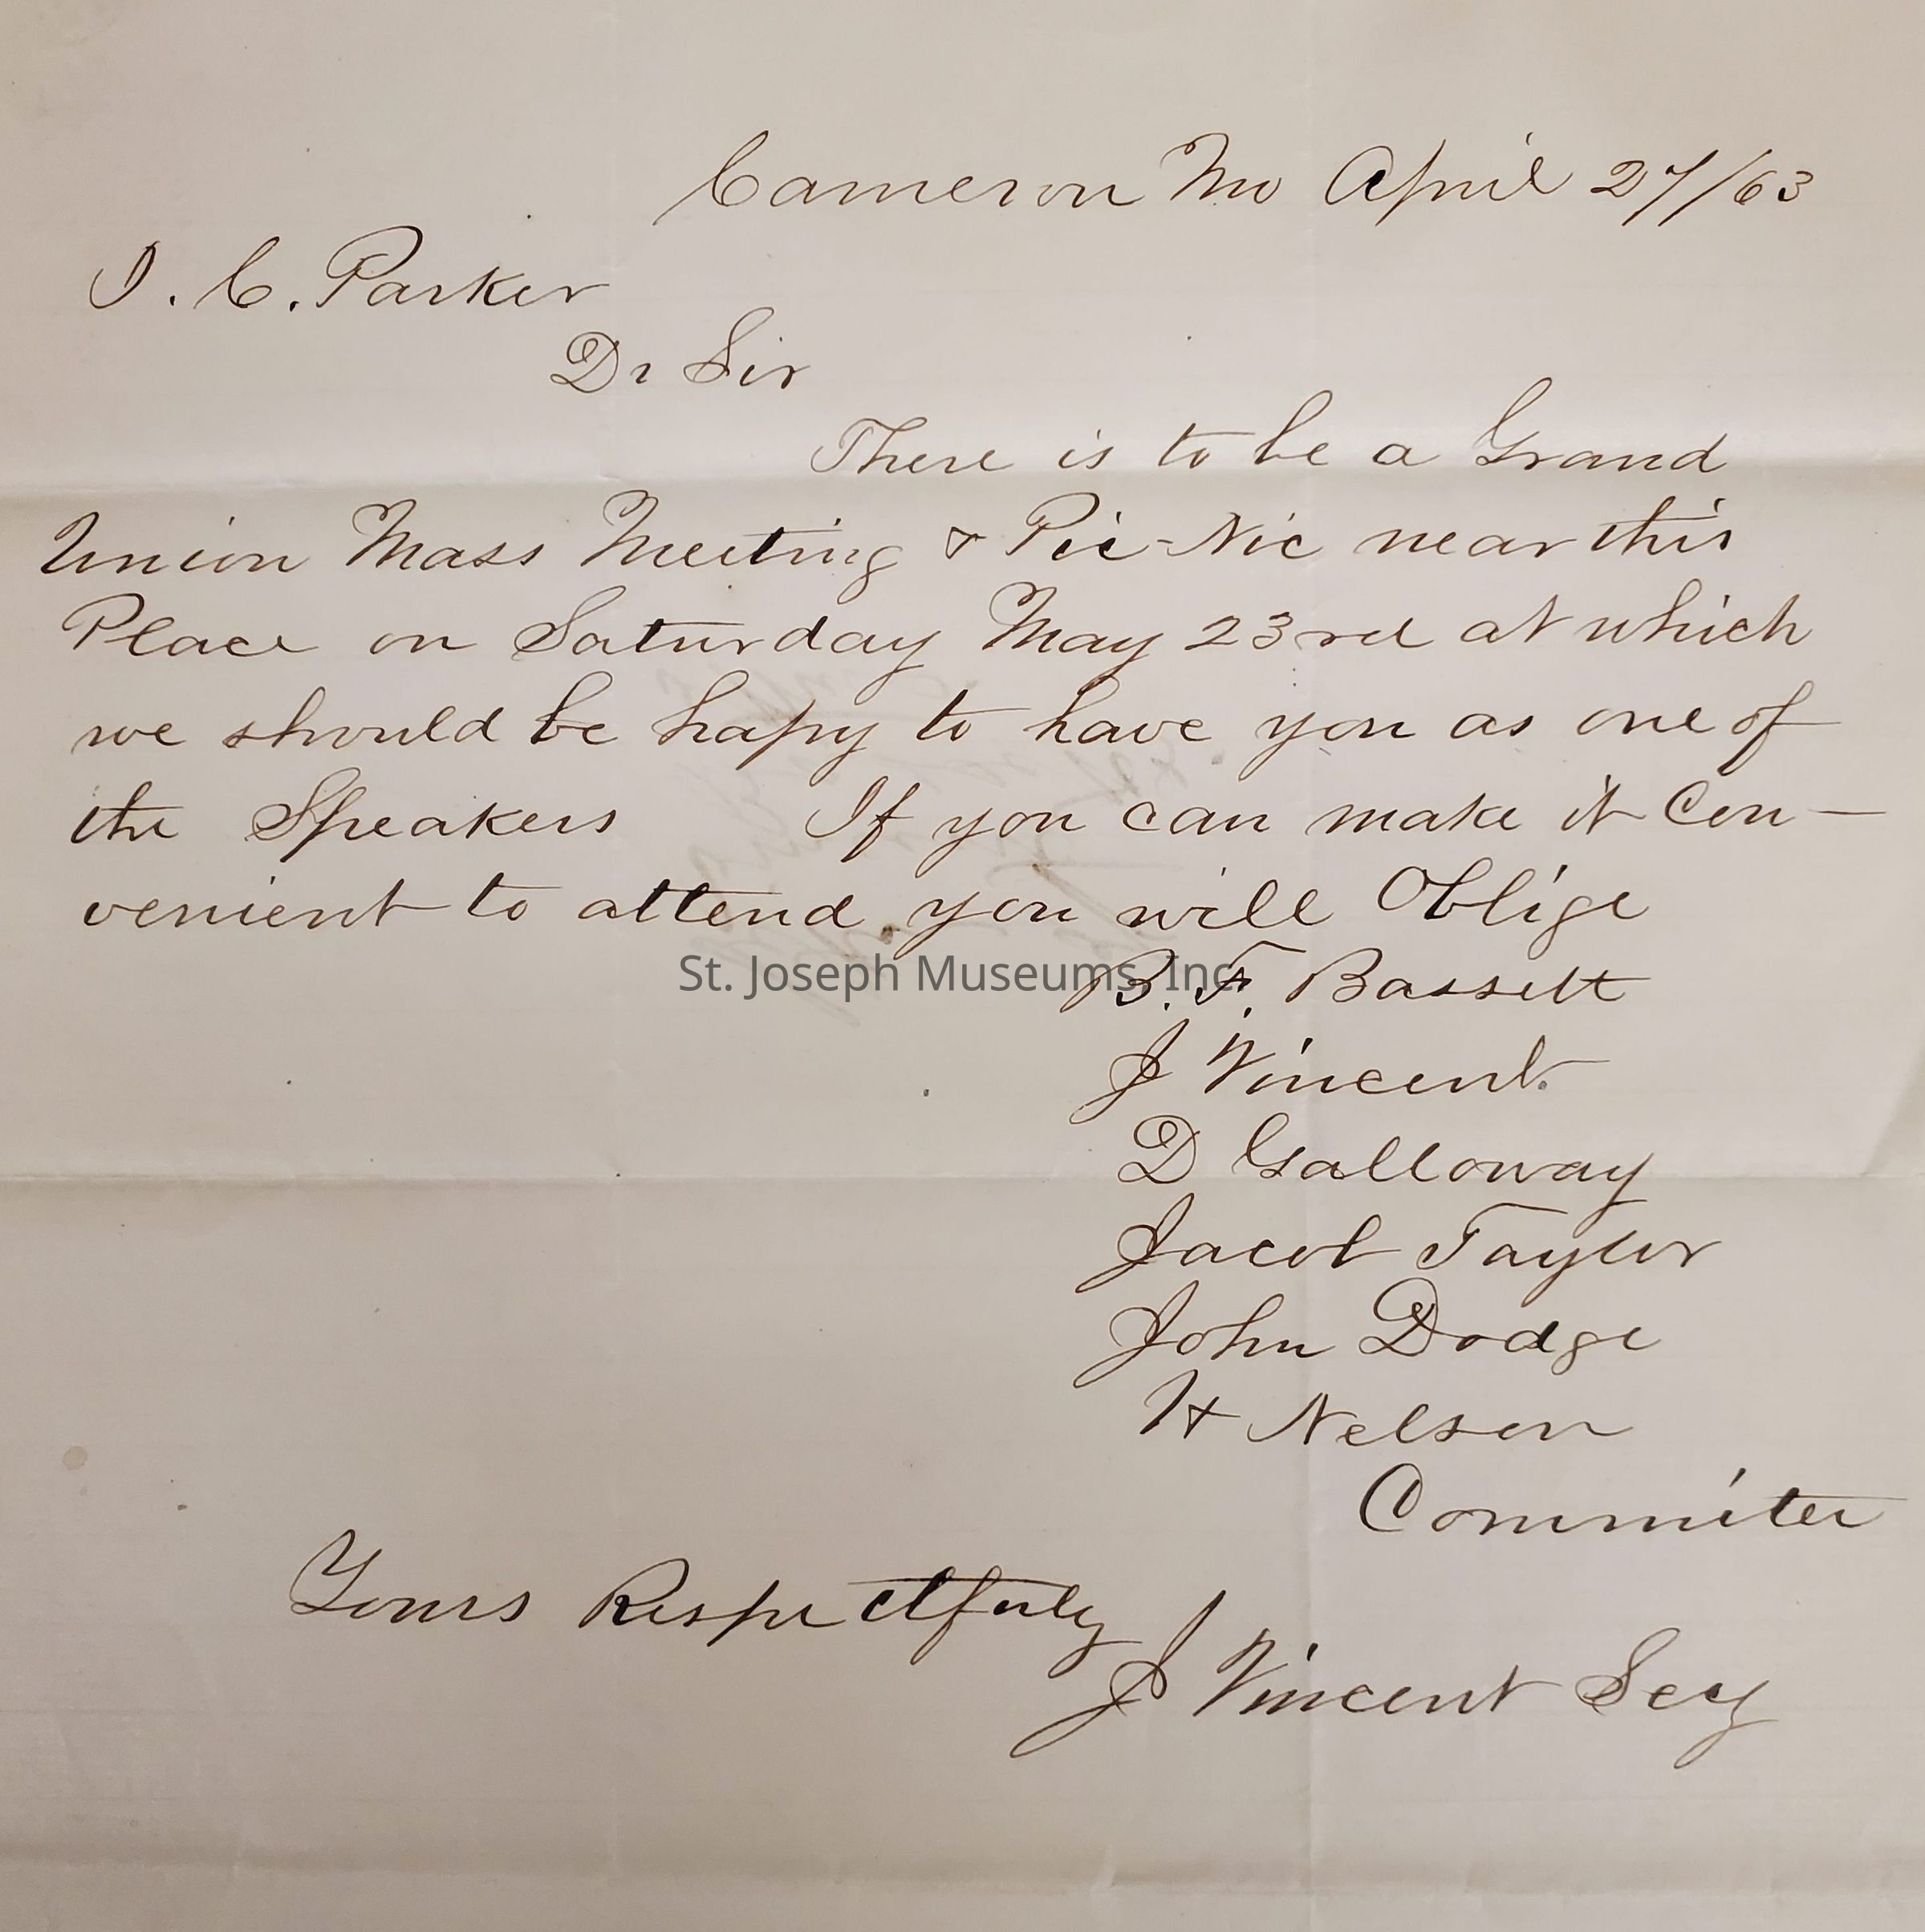 Cameron Mo April 27/63
I. C. Parker
Dr Sir
There is to be a Grand
Union Mass Meeting & Pic-Nic near this
Place on Saturday May 23rd at which
we should be hapy to have you as one of
the Speakers If you can make it Con-
venient to attend you will Oblige
St. Joseph Museums, Inc.
B. F. Bassett
J Vincent
D Galloway
Jacob Taylor
John Dodge
H Nelson
Commitee
Yours Respectfuly
J Vincent Secy